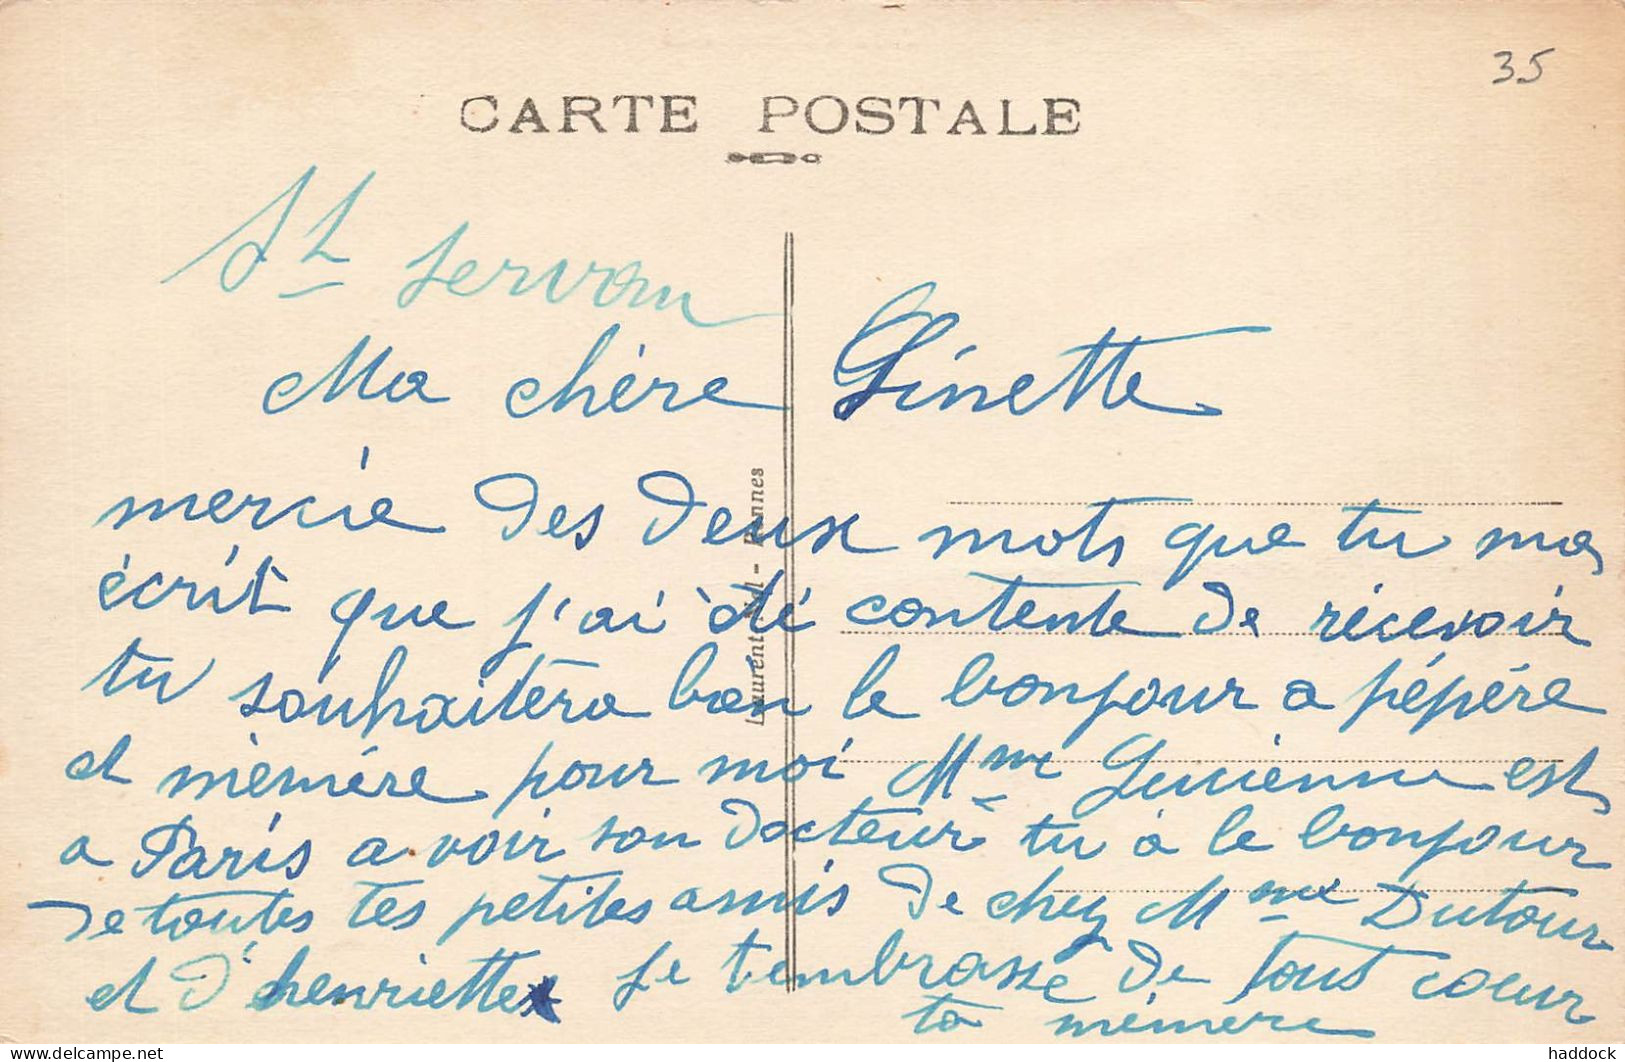 35
CARTE POSTALE
St Servan
Ma chère Ginette
mercie des deux mots que tu ma
écrit que j'ai été contente de récevoir
tu souhaitera bon le bonjour a pépére
et mèmére pour moi Mme Lucienne est
a Paris a voir son docteur tu à le bonjour
de toutes tes petites amis de chez Mme Dutour
et d'henriette Je t'embrasse de tout coeur
ta mémere
Laurent-Nel - Rennes
delcampe.net
haddock